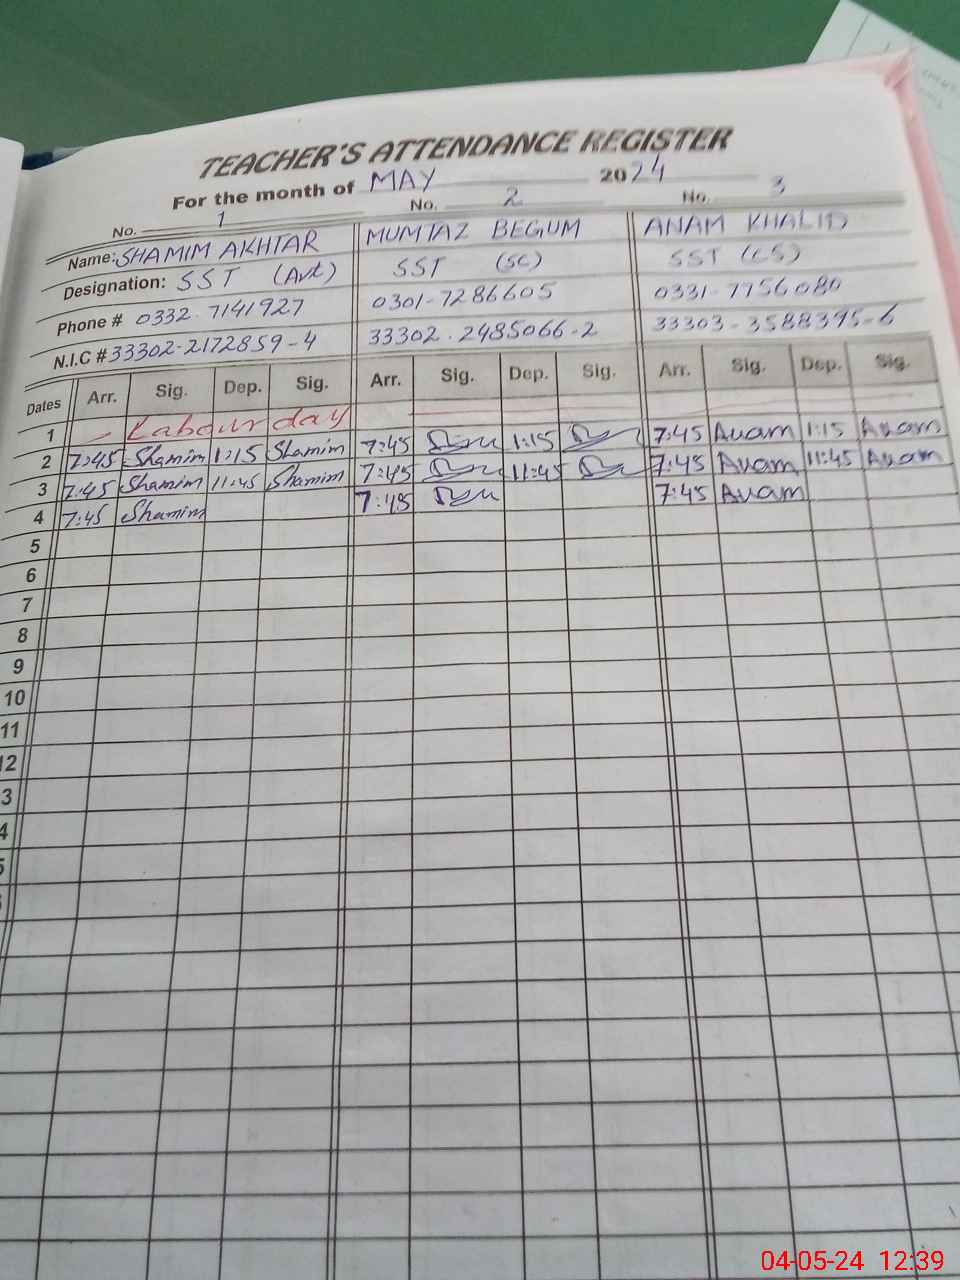 TEACHER'S ATTENDANCE REGISTER
For the month of MAY 2024
No. 1 No. 2 No. 3
Name: SHAMIM AKHTAR MUMTAZ BEGUM ANAM KHALID
Designation: SST (Art) SST (SC) SST (CS)
Phone # 0332-7141927 0301-7286605 0331-7756080
N.I.C # 33302-2172859-4 33302-2485066-2 33303-3588395-6
Dates Arr. Sig. Dep. Sig. Arr. Sig. Dep. Sig. Arr. Sig. Dep. Sig.
1 Labour day
2 7:45 Shamim 1:15 Shamim 7:45 1:15 7:45 Anam 1:15 Anam
3 7:45 Shamim 11:45 Shamim 7:45 11:45 7:45 Anam 11:45 Anam
4 7:45 Shamim 7:45 7:45 Anam
5
6
7
8
9
10
11
12
3
4
5
04-05-24 12:39